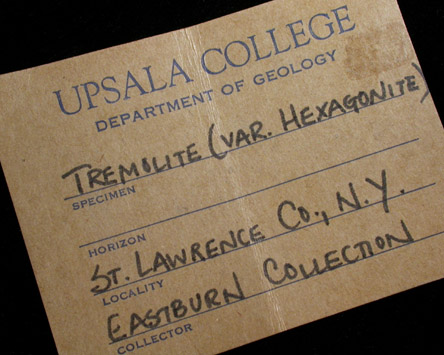 UPSALA COLLEGE
DEPARTMENT OF GEOLOGY
TREMOLITE (VAR. HEXAGONITE)
SPECIMEN
HORIZON
ST. LAWRENCE CO., N.Y.
LOCALITY
EASTBURN COLLECTION
COLLECTOR